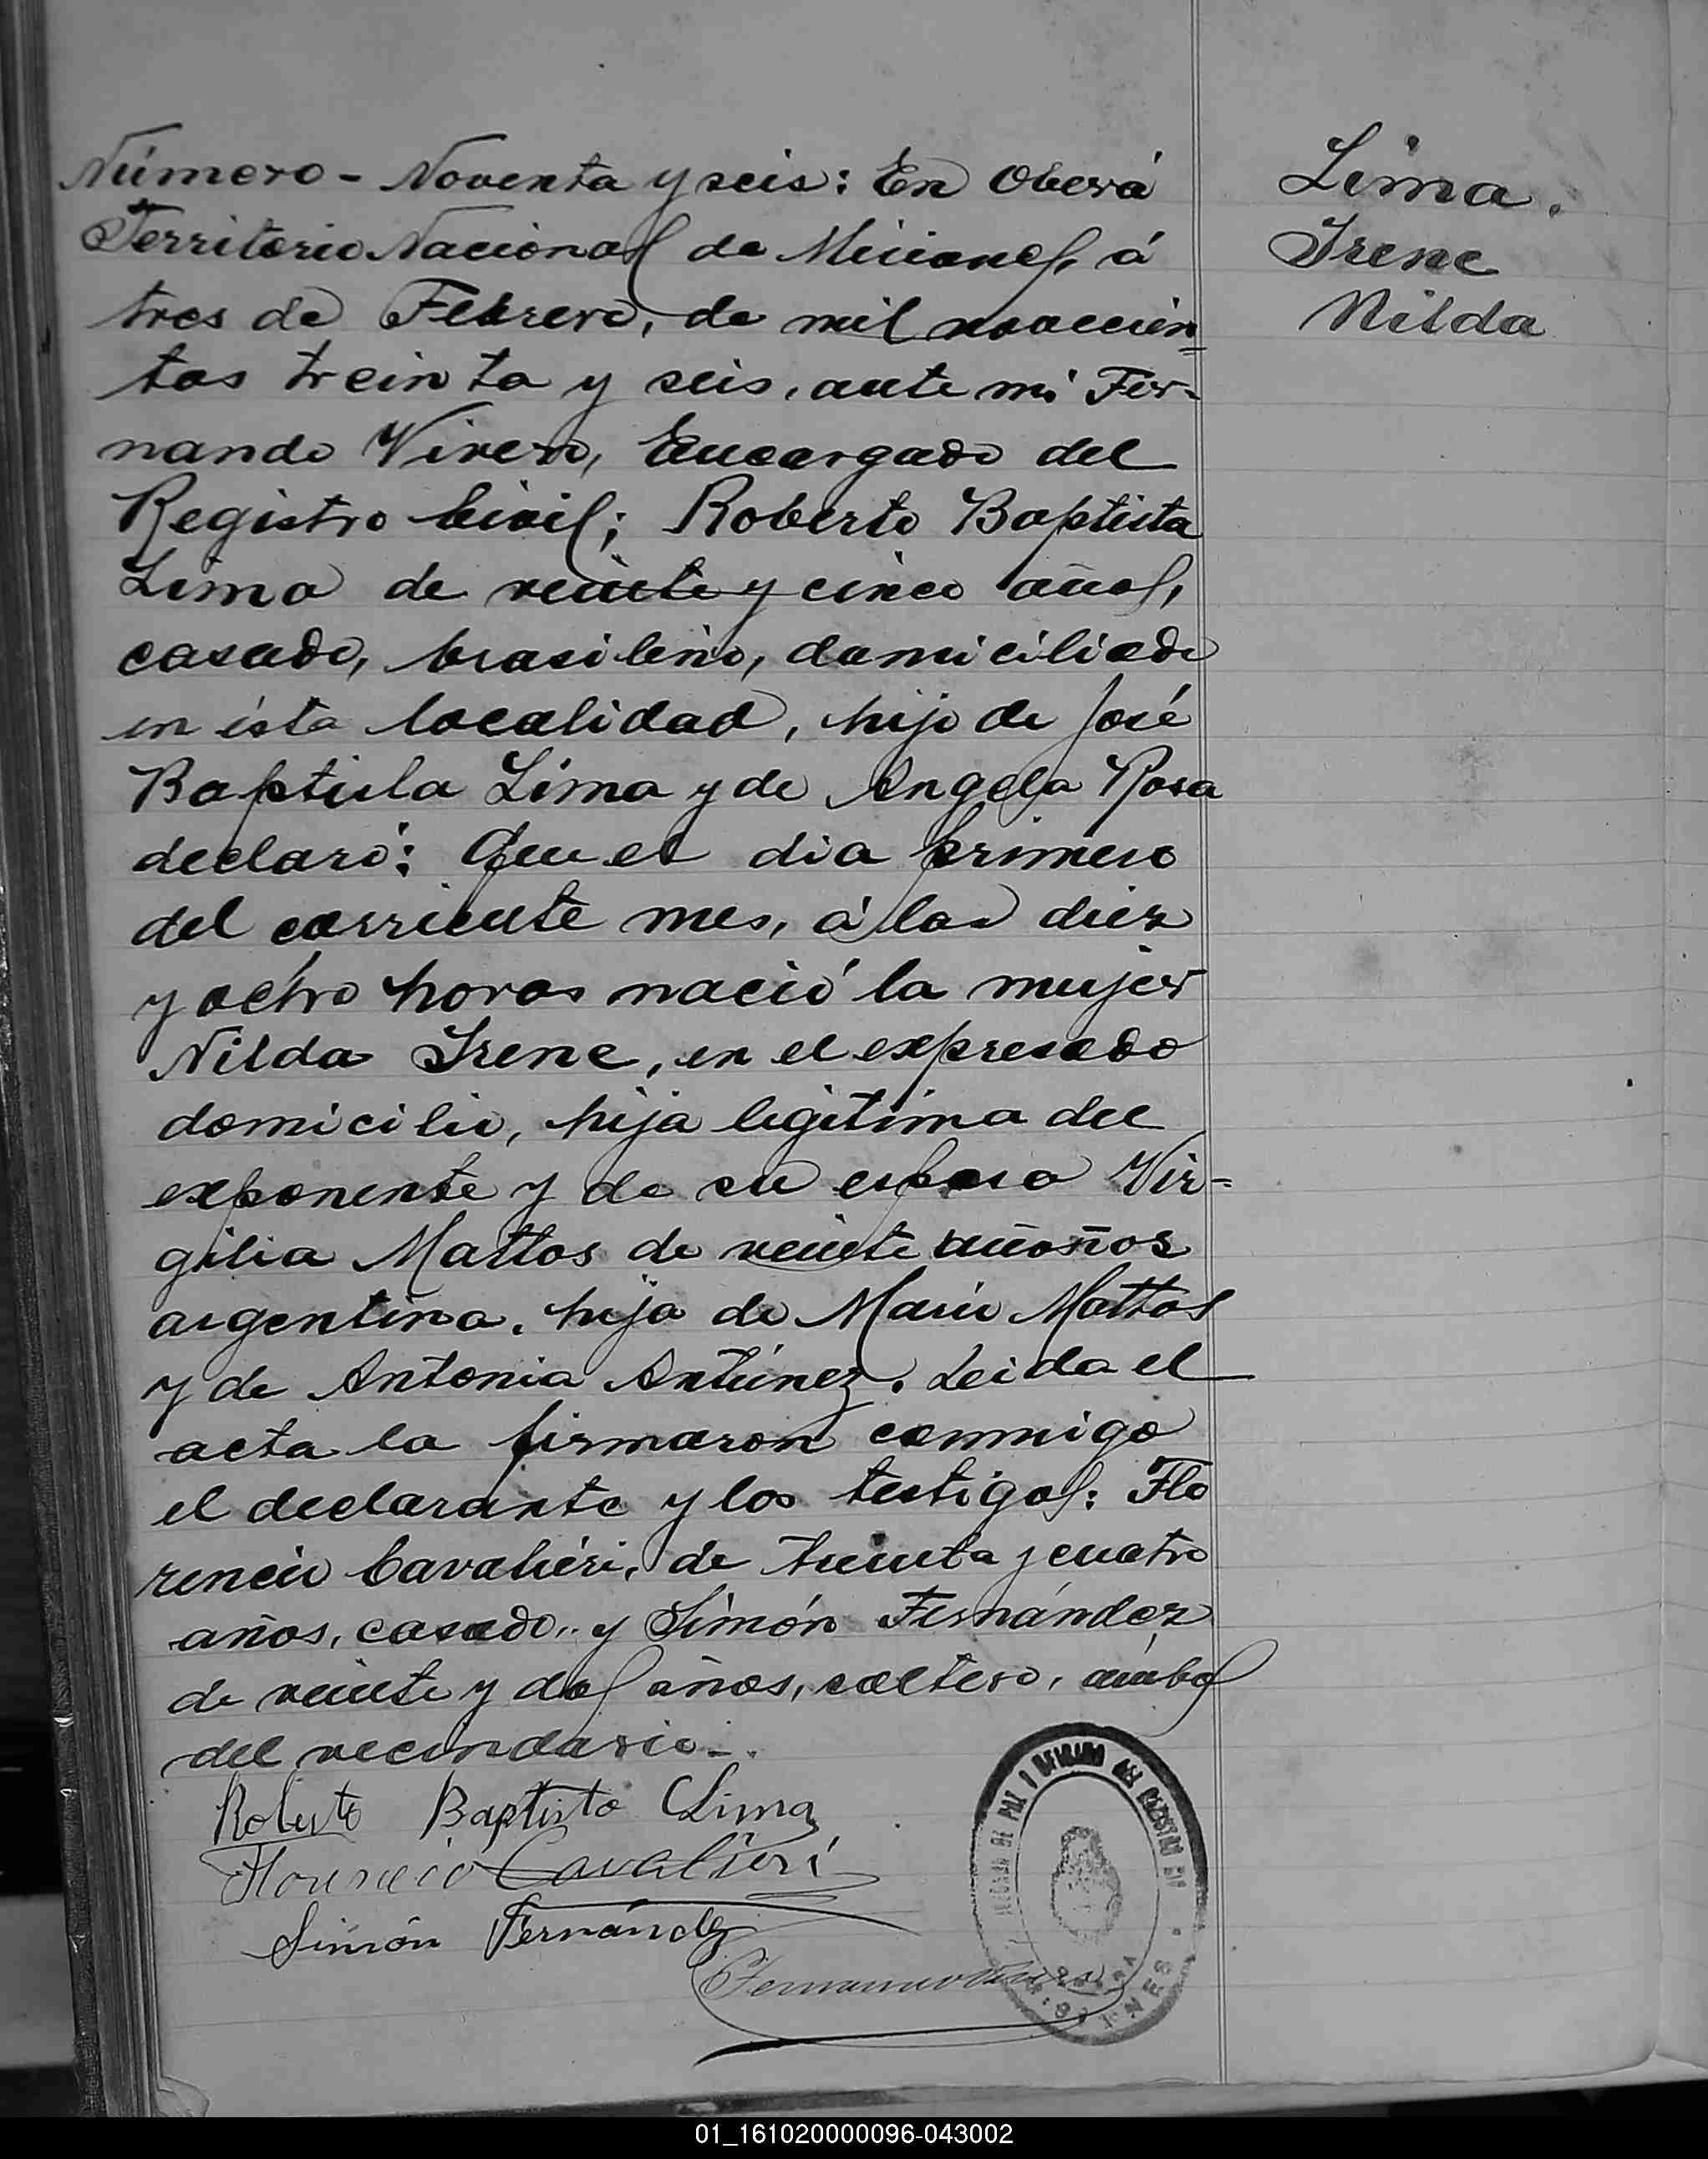 Número - Noventa y seis: En Oberá
Territorio Nacional de Misiones, á
tres de Febrero, de mil novecien
tos treinta y seis, ante mi Fer-
nando Vivero, Encargado del
Registro Civil; Roberto Baptista
Lima de veinte y cinco años,
casado, brasileño, domiciliado
en ésta localidad, hijo de José
Baptista Lima y de Angela Rosa
declaró: Que el dia primero
del corriente mes, á las diez
y ocho horas nació la mujer
Nilda Irene, en el expresado
domicilio, hija legitima del
exponente y de su esposa Vir-
gilia Mattos de veinte
argentina, hija de Mario Mattos
y de Antonia Antúnez. Leida el
acta la firmaron conmigo
el declarante y los testigos: Flo
rencio Cavaliéri, de treinta y cuatro
años, casado, y Simón Fernández
de veinte y dos años, soltero, ambos
del vecindario.
Roberto Baptista Lima
Florencio Cavalieri
Simón Fernández
Lima.
Irene
Nilda
JUZGADO DE PAZ DEL REGISTRO
MISIONES
01_161020000096-043002